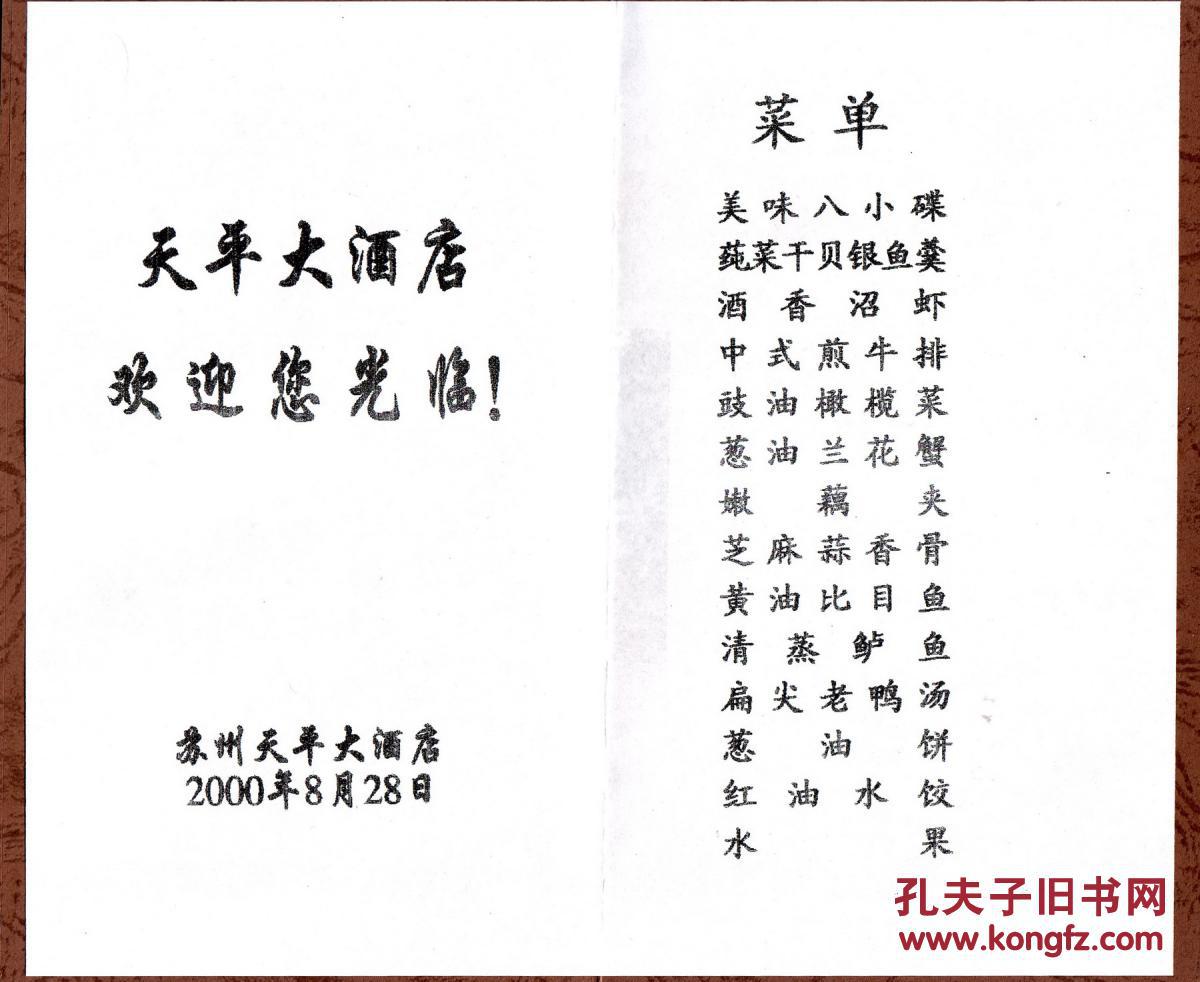 天平大酒店
欢迎您光临!
苏州天平大酒店
2000年8月28日
菜单
美味八小碟
莼菜干贝银鱼羹
酒香沼虾
中式煎牛排
豉油橄榄菜
葱油兰花蟹
嫩藕夹
芝麻蒜香骨
黄油比目鱼
清蒸鲈鱼
扁尖老鸭汤
葱油饼
红油水饺
水果
孔夫子旧书网
www.kongfz.com